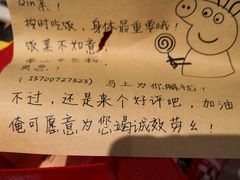 Qin某！
按时吃饭，身体最重要哦！
饭菜不如意！
(13700727323) 马上为你解忧！
不过，还是来个好评吧，加油
俺可愿意为您竭诚效劳么！